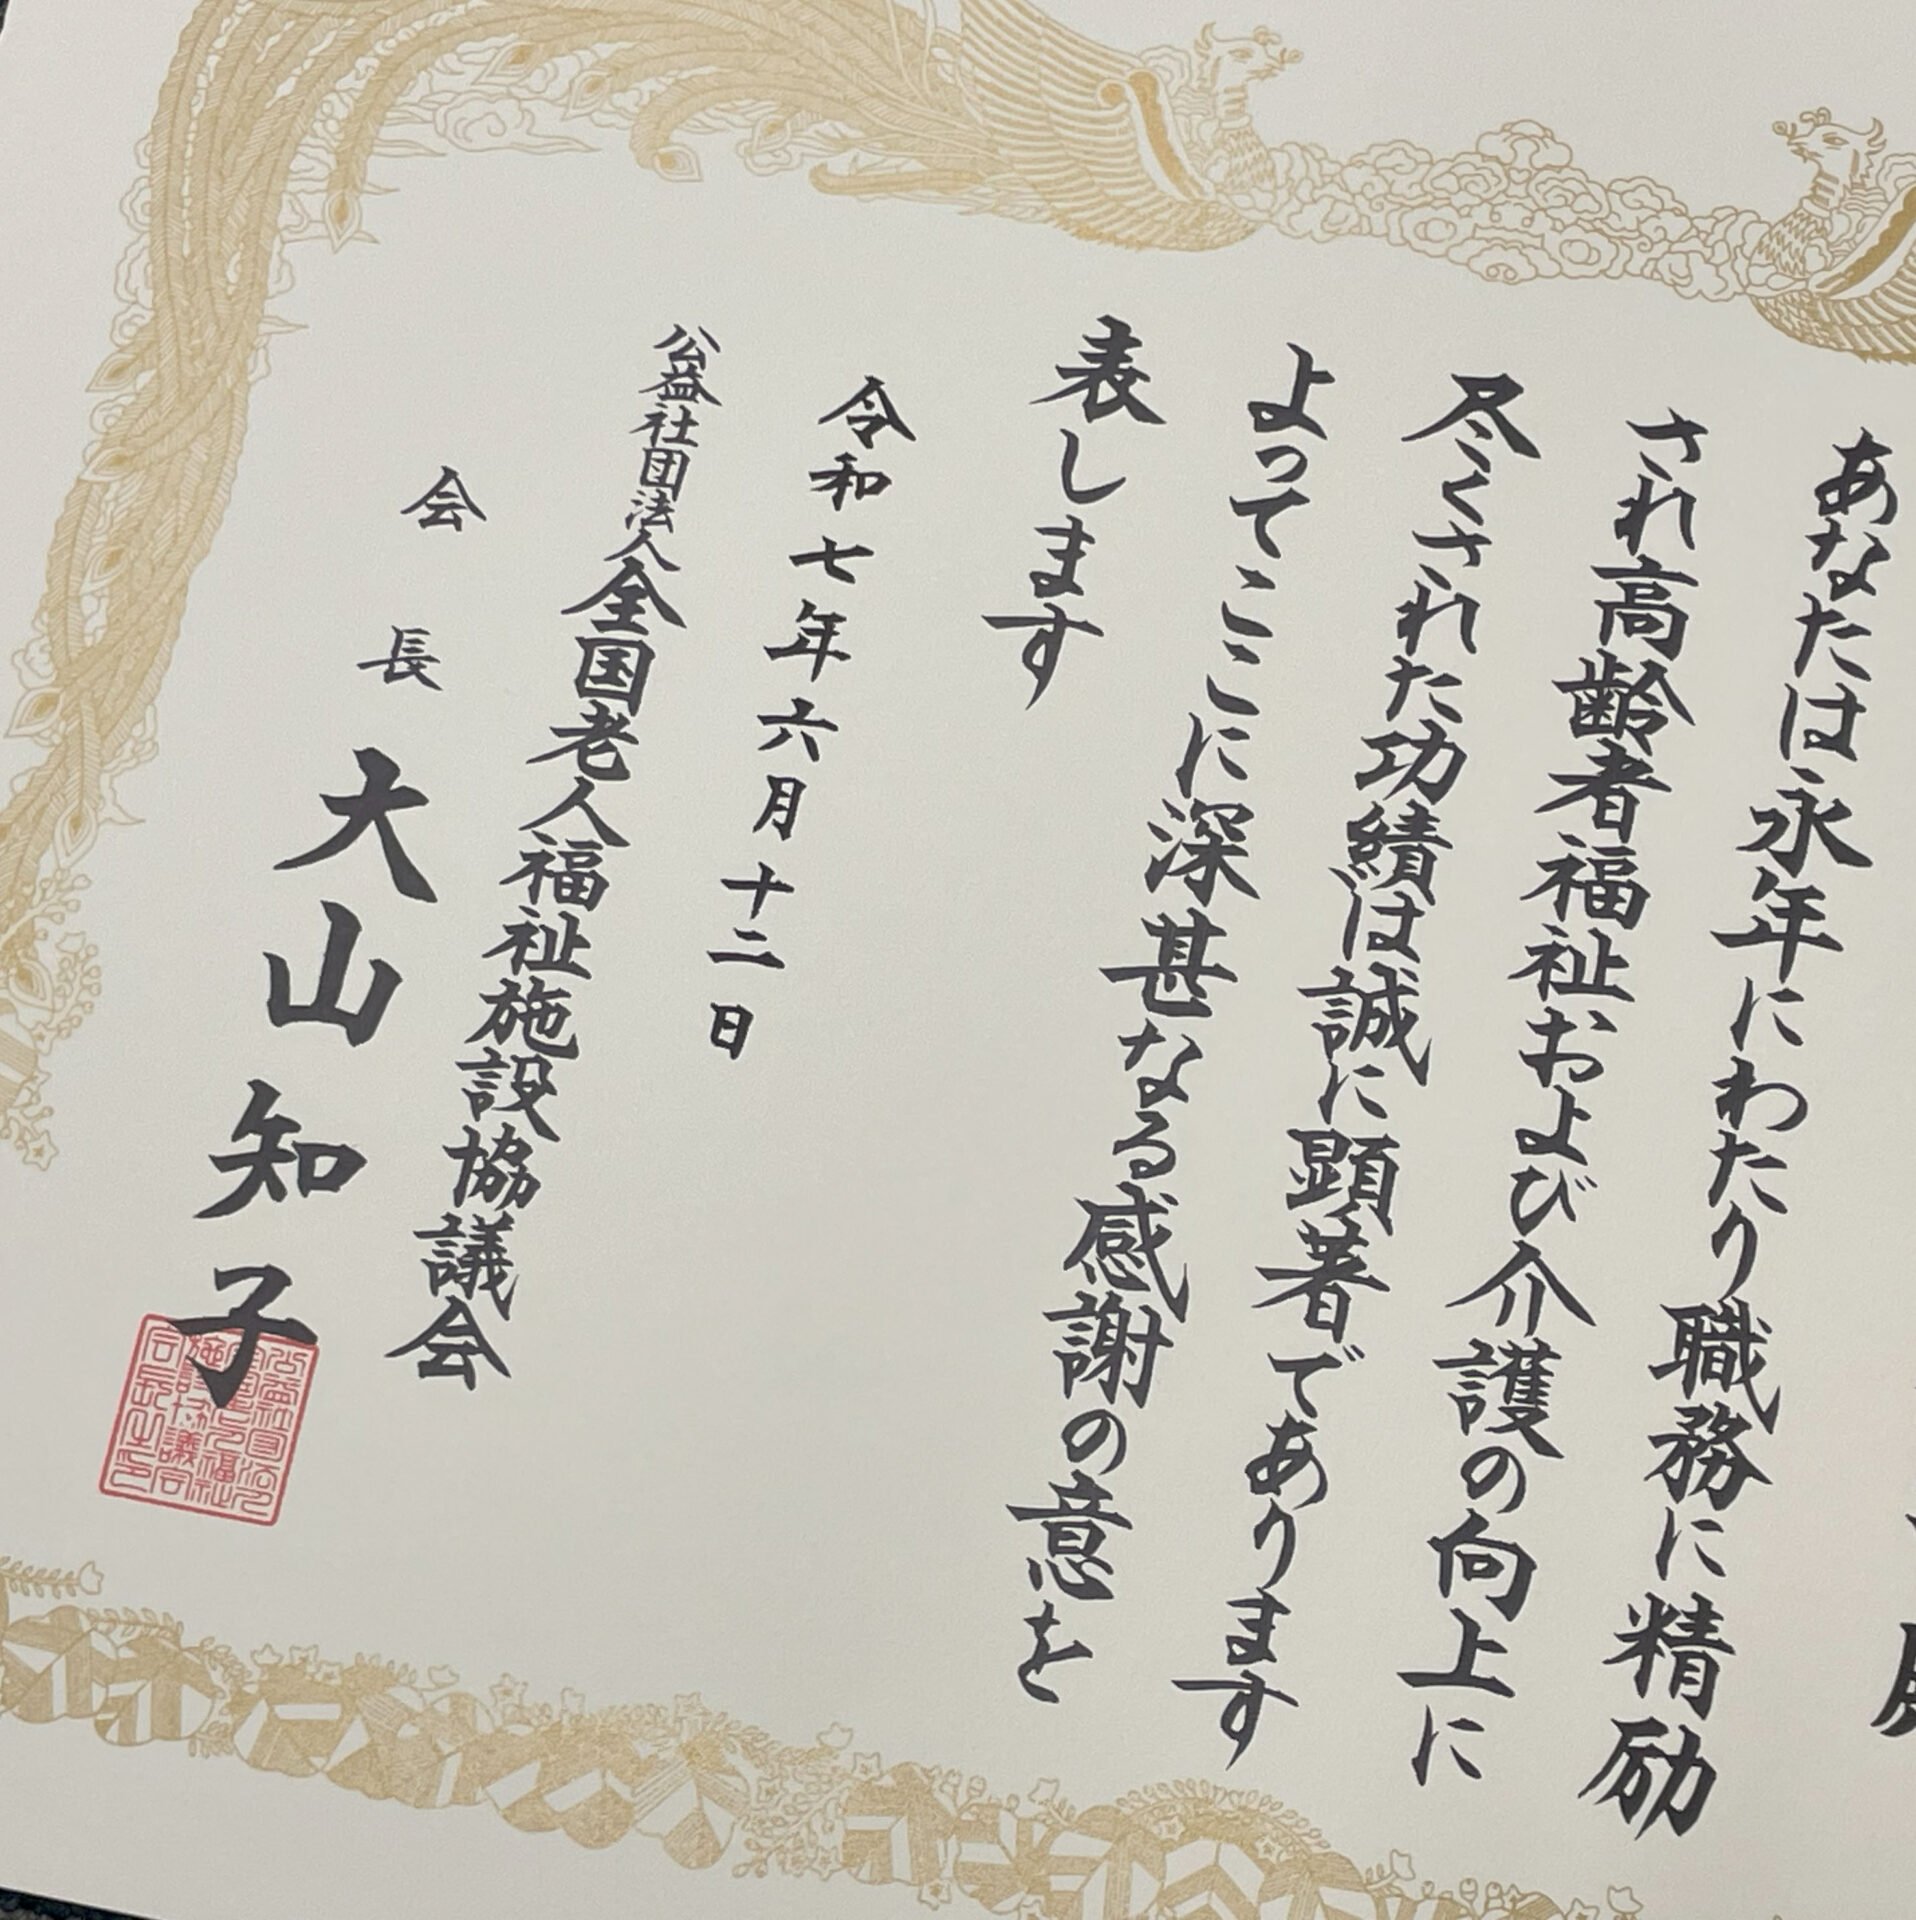 あなたは永年にわたり職務に精励
され高齢者福祉および介護の向上に
尽くされた功績は誠に顕著であります
よってここに深甚なる感謝の意を
表します
令和七年六月十二日
公益社団法人全国老人福祉施設協議会
会長 大山知子
公益社団法人
全国老人福祉
施設協議会
会長之印